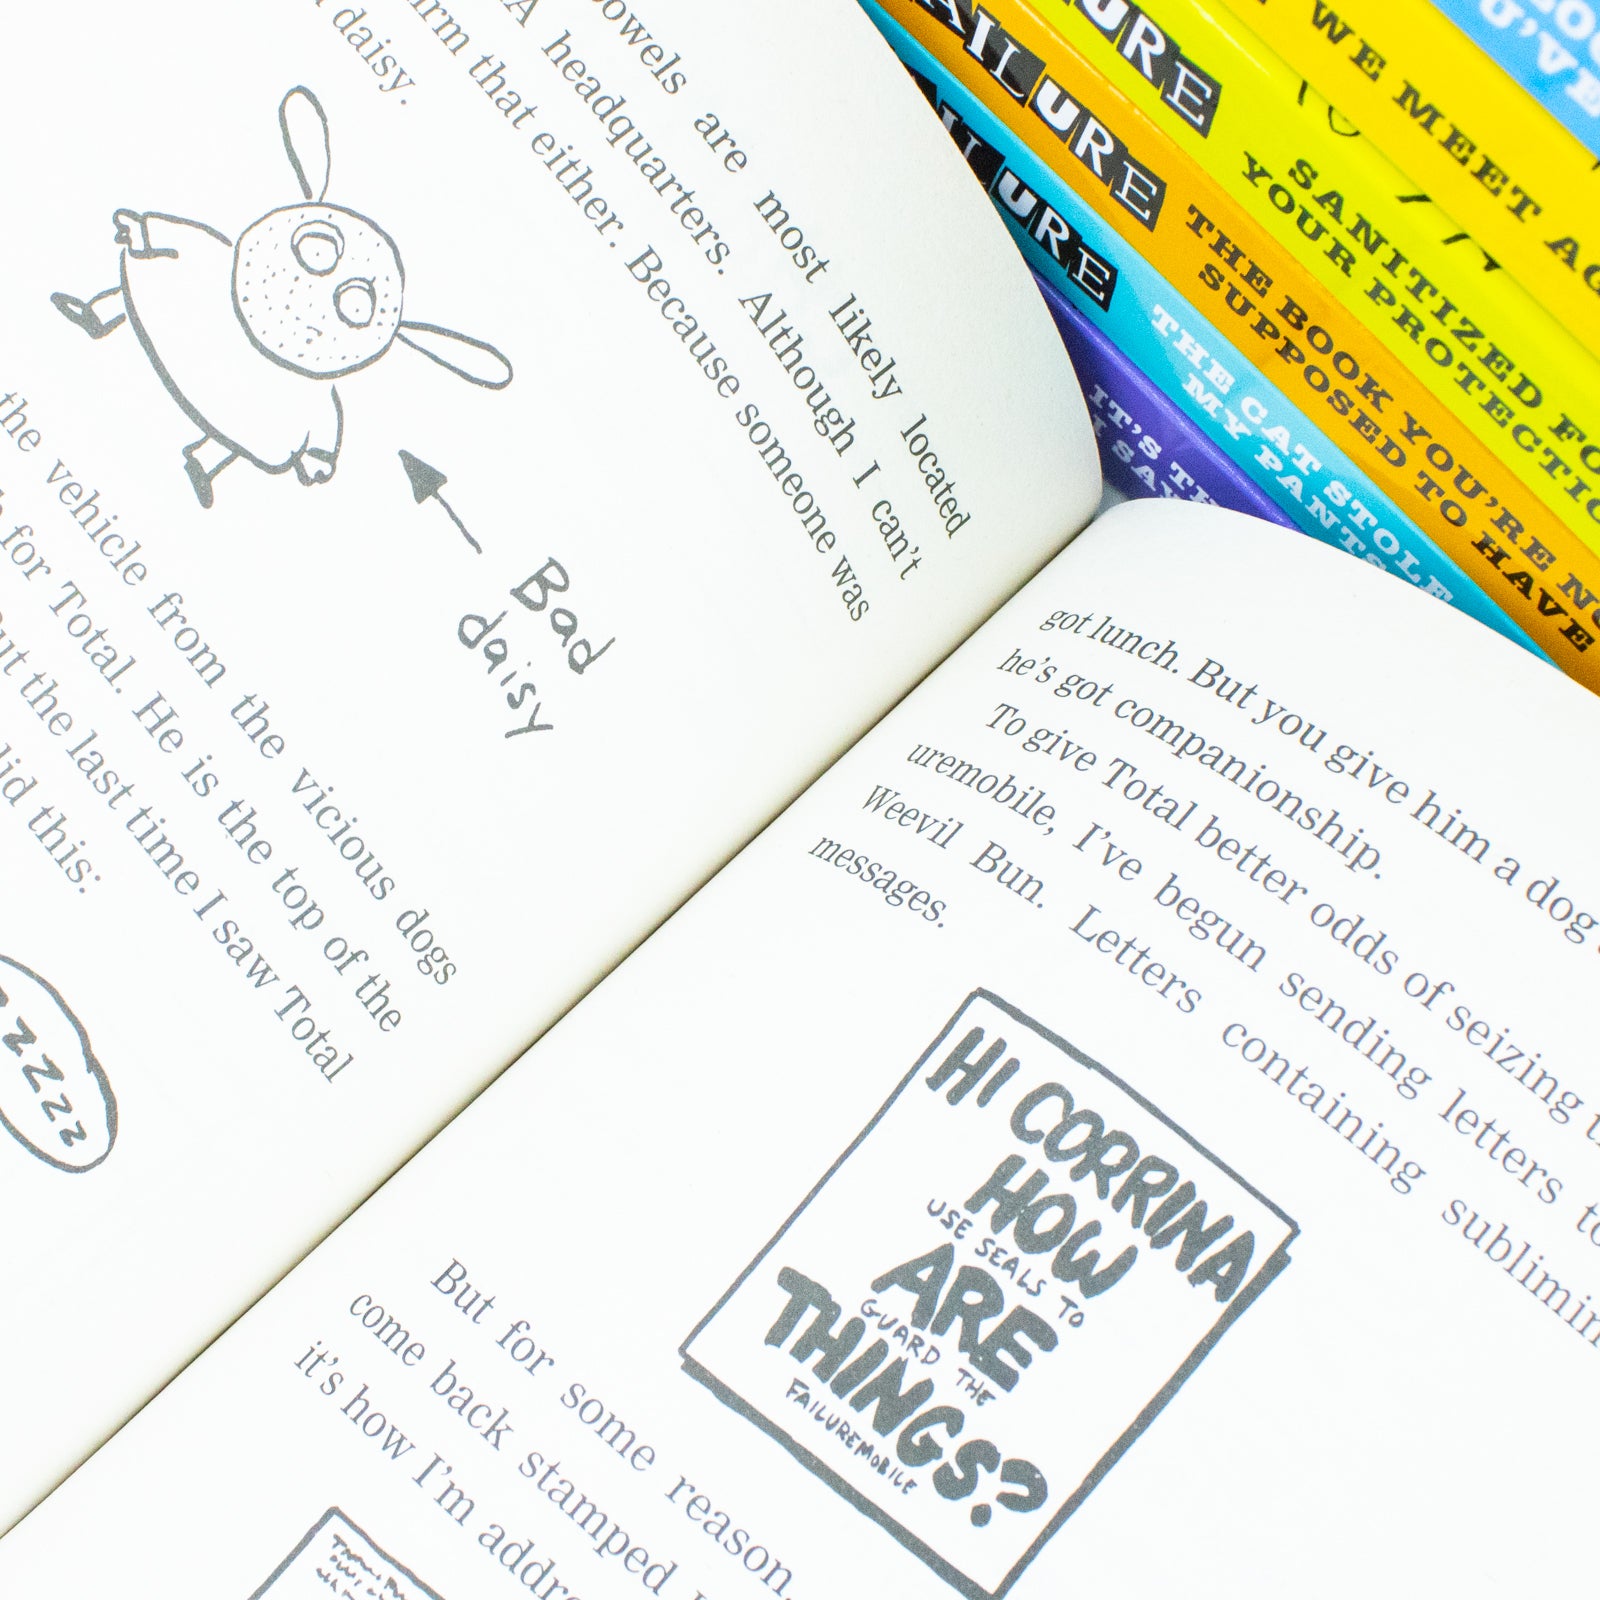 bowels are most likely located
A headquarters. Although I can't
that either. Because someone was
daisy.
Bad
daisy
the vehicle from the vicious dogs
for Total. He is the top of the
the last time I saw Total
this:
ZZZZ
got lunch. But you give him a dog
he's got companionship.
To give Total better odds of seizing
uremobile, I've begun sending letters
Weevil Bun. Letters containing
messages.
HI CORRINA
HOW
USE SEALS TO
ARE
GUARD THE
THINGS?
FAILUREMOBILE
But for some reason,
come back stamped
it's how I'm
WE MEET
URE
SANITIZED
YOUR PROTECTION
AILURE
THE BOOK YOU'RE
SUPPOSED TO HAVE
URE
THE CAT STOLE
MY PANTS
IT'S
I